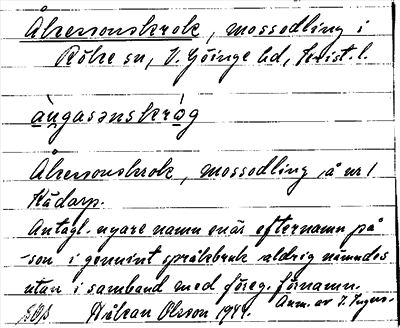 Åkessonskrok, mossodling i
Röke sn, V. Göinge hd, Krist. l.
àŋgasənskrǻg
Åkessonskrok, mossodling å nr 1
Kådarp.
Antagl. nyare namn enär efternamn på
-son i genuint språkbruk aldrig nämndes
utan i samband med föreg. förnamn.
Håkan Olsson 1944. Anm. av I. Ingers.